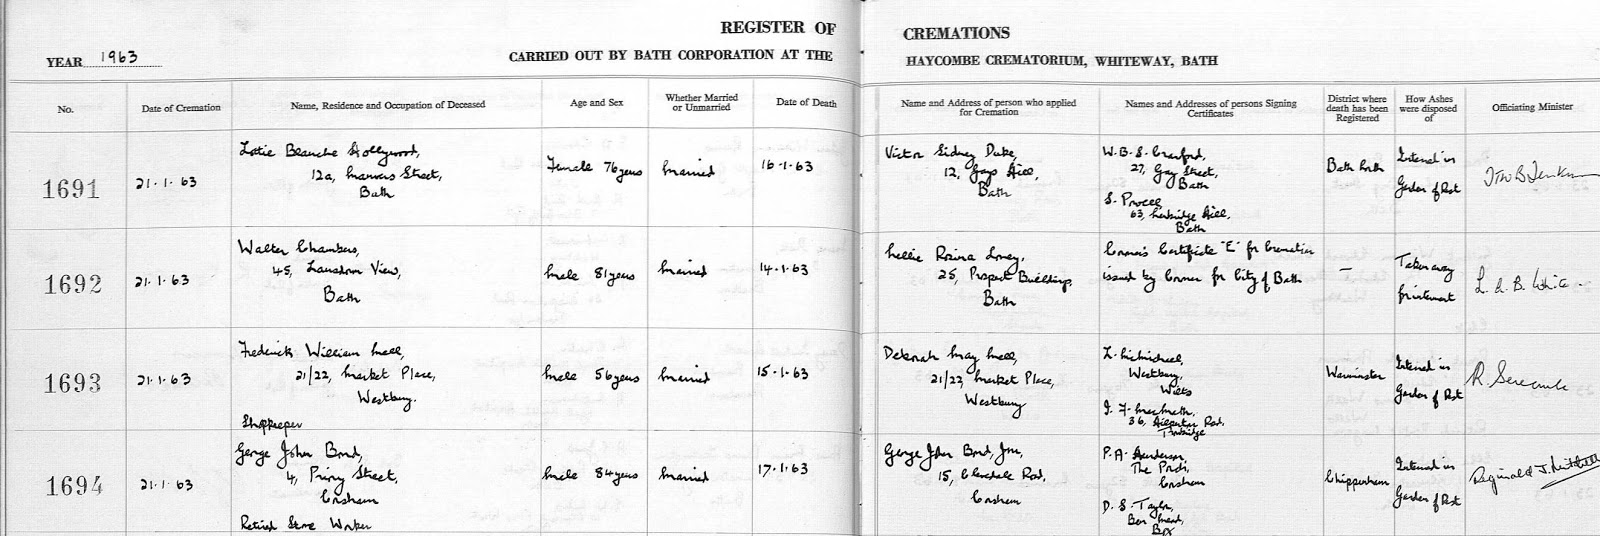 REGISTER OF CREMATIONS
YEAR 1963 CARRIED OUT BY BATH CORPORATION AT THE HAYCOMBE CREMATORIUM, WHITEWAY, BATH
No.
Date of Cremation
Name, Residence and Occupation of Deceased
Age and Sex
Whether Married
or Unmarried
Date of Death
Name and Address of person who applied
for Cremation
Names and Addresses of persons Signing
Certificates
District where
death has been
Registered
How Ashes
were disposed
of
Officiating Minister
1691
21.1.63
Lottie Blanche Hollywood,
12a, Street,
Bath
Female 76 years
Married
16-1-63
Victor Sidney Duke,
12, Gays Hill,
Bath
W.B.S. Crawford,
27, Gay Street,
Bath
S. Procell
63, Hill,
Bath
Bath
Interred in
Garden of Rest
1692
21.1.63
Walter Chambers,
45, Lansdown View,
Bath
Male 81 years
Married
14-1-63
Nellie Rosina
25, Prospect Buildings,
Bath
Coroner's Certificate "E" for Cremation
issued by Coroner for City of Bath
—
Taken away
for interment
White
1693
21.1.63
Frederick William Mell,
21/22, Market Place,
Westbury.
Shopkeeper
Male 56 years
Married
15-1-63
Deborah May Mell,
21/22, Market Place,
Westbury
Westbury,
Wilts
36, Rd,
Trowbridge
Warminster
Interred in
Garden of Rest
R.
1694
21.1.63
George John Bond,
4, Priory Street,
Corsham
Retired Stone Worker
Male 84 years
Married
17-1-63
George John Bond, Jnr,
15, Clevedale Rd,
Corsham
P.A. Henderson,
The
Corsham
D.S. Taylor,
Box
Chippenham
Interred in
Garden of Rest
Reginald J. Mitchell